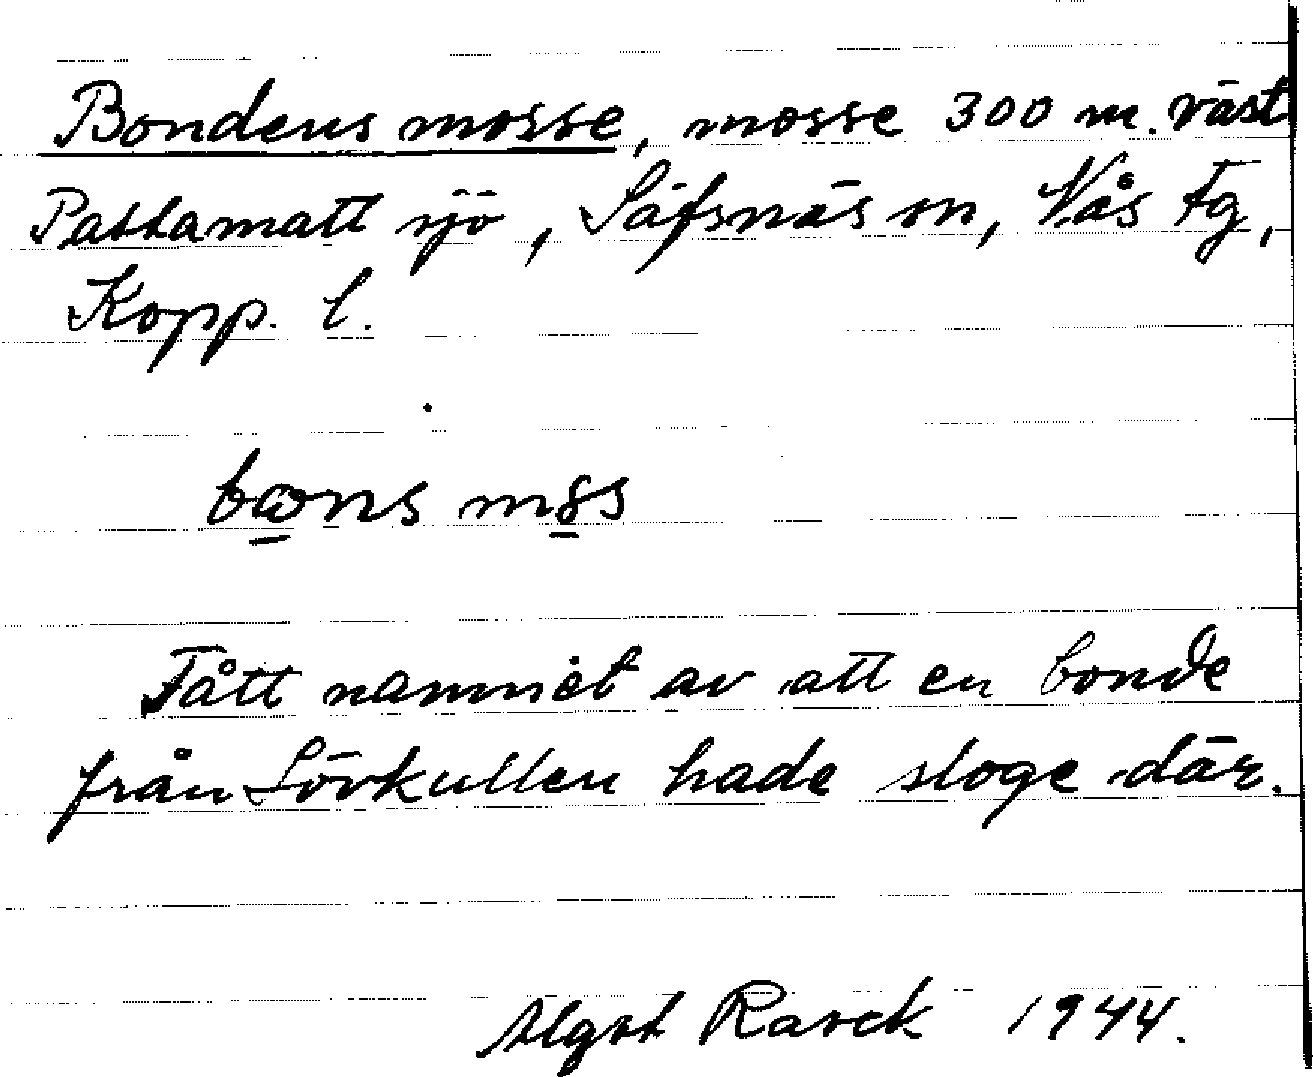 Bondens mosse, mosse 300 m. väst
Pattamatt sjö, Säfsnäs sn, Nås Fg,
Kopp. l.
bωns mɞs
Fått namnet av att en bonde
från Lövkullen hade sloge där.
Algot Rasck 1944.